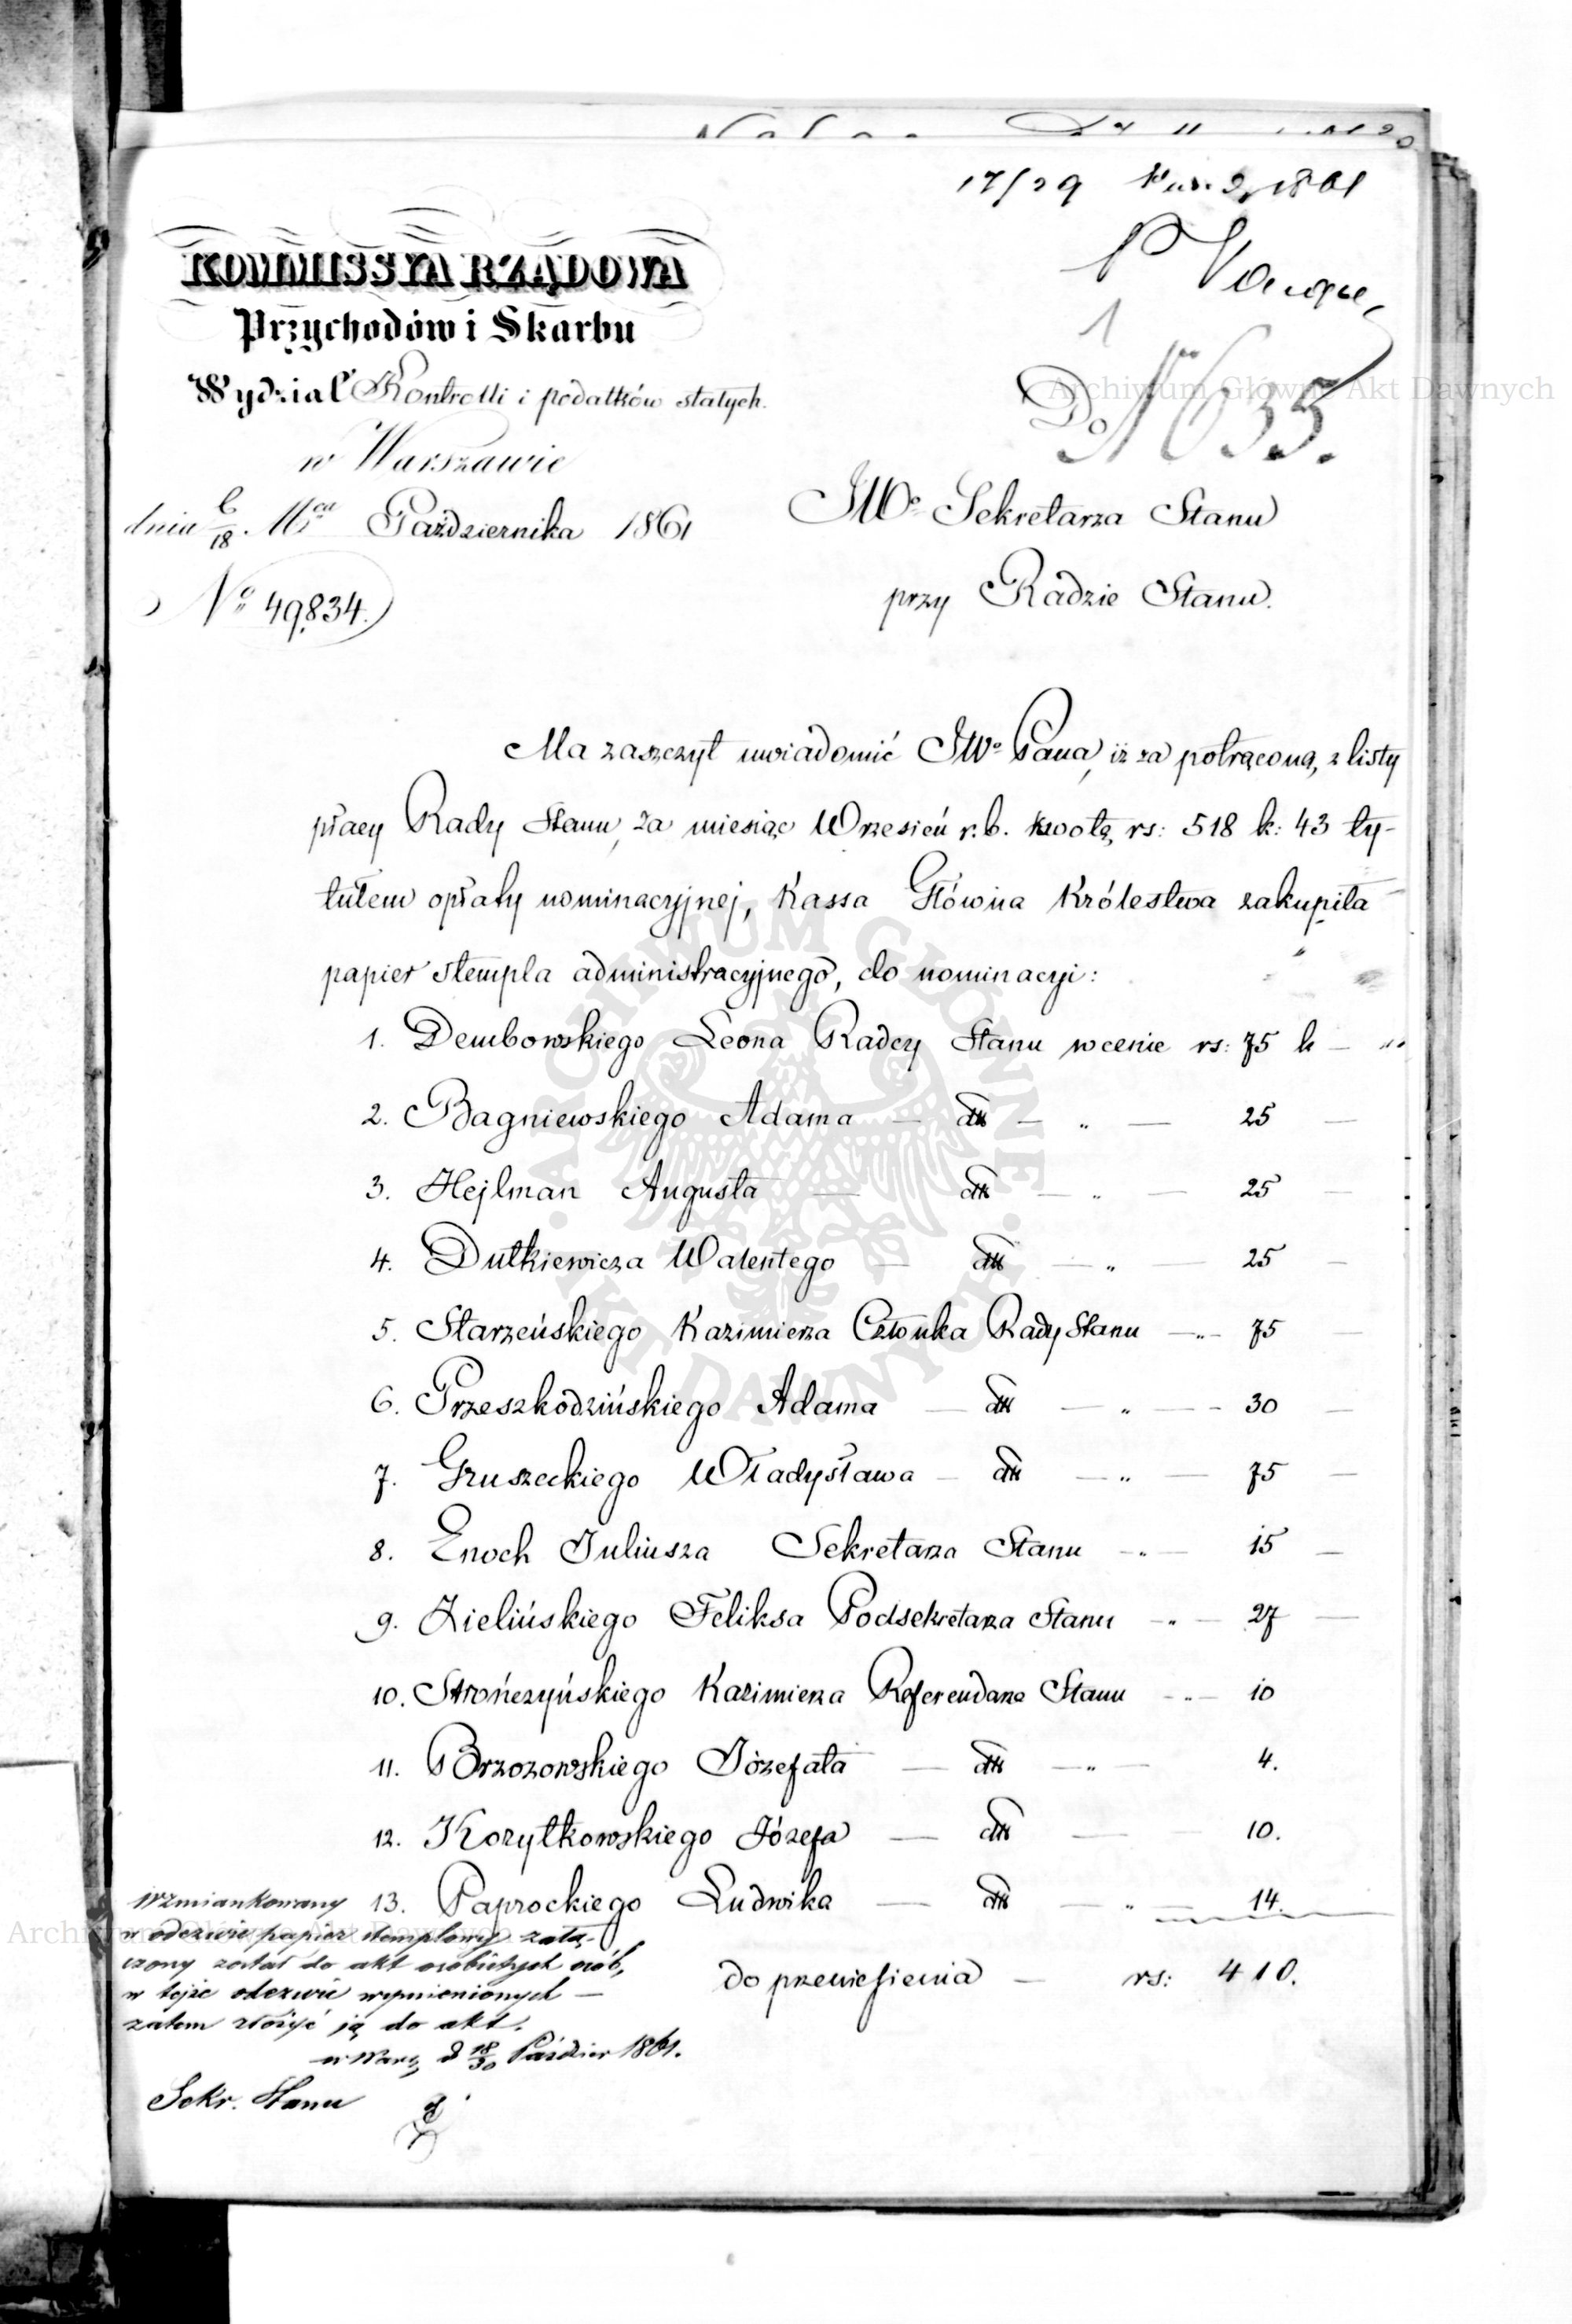 17/29 1861
KOMMISSYA RZĄDOWA
Przychodów i Skarbu
Wydział Kontrolli i podatków stałych.
w Warszawie
dnia 6/18. Mca Października 1861
No 49,834.
1
N 635.
Do
JWo Sekretarza Stanu
przy Radzie Stanu.
Ma zaszczyt uwiadomić JWo Pana, iż za potrąconą, z listy
płacy Rady Stanu, za miesiąc Wrzesień r.b. kwotę rs: 518 k: 43 ty-
tułem opłaty nominacyjnej, Kassa Główna Królestwa zakupiła
papier stempla administracyjnego, do nominacyi:
1. Dembowskiego Leona Radcy Stanu w cenie rs: 75 k — "
2. Bagniewskiego Adama — dtt — " — 25 —
3. Hejlman Augusta — dtt — " — 25 —
4. Dutkiewicza Walentego — dtt — " — 25 —
5. Starzeńskiego Kazimierza Członka Rady Stanu — " — 75 —
6. Przeszkodzińskiego Adama — dtt — " — 30 —
7. Gruszeckiego Władysława — dtt — " — 75 —
8. Enoch Juliusza Sekretarza Stanu — " — 15 —
9. Zielińskiego Feliksa Podsekretarza Stanu — " — 27 —
10. Strończyńskiego Kazimierza Referendarza Stanu — " — 10
11. Brzozowskiego Józefata — dtt — " — 4.
12. Korytkowskiego Józefa — dtt — — 10.
13. Paprockiego Ludwika — dtt — " — 14.
do przeniesienia — rs: 410.
Wzmiankowany
w odezwie papier stemplowy załą-
czony został do akt osobistych osób,
w tejże odezwie wymienionych —
zatem złożyć ją do akt.
w Warsz. d 18/30 Paździer 1861.
Sekr. Stanu
Archiwum Główne Akt Dawnych
Archiwum Główne Akt Dawnych
ARCHIWUM GŁÓWNE · AKT DAWNYCH ·